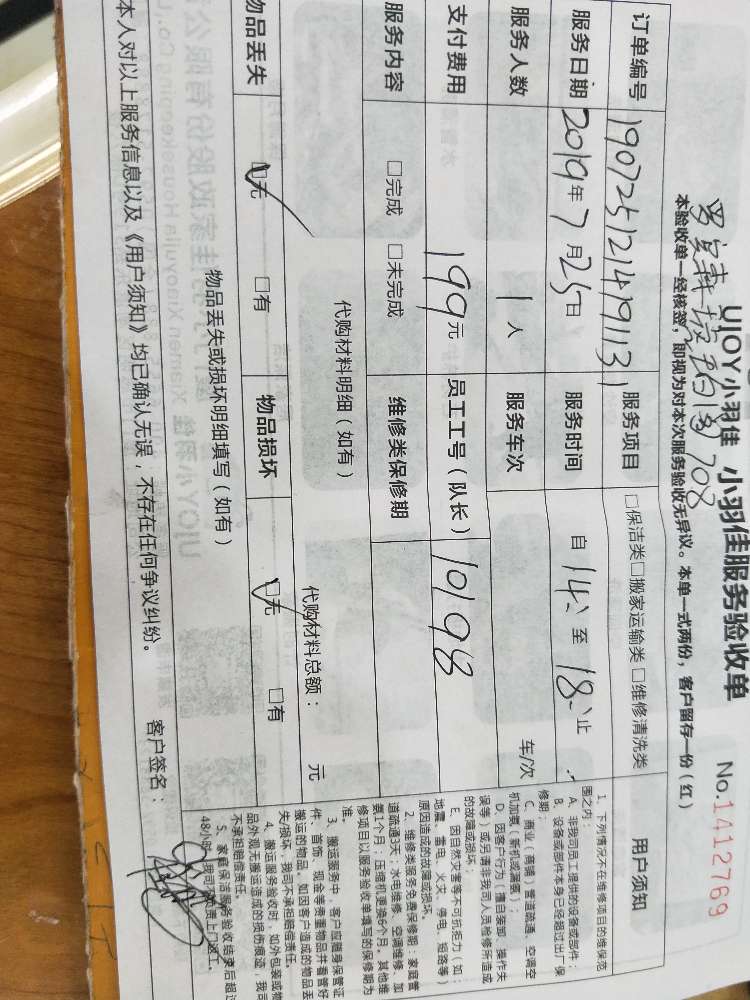 UJOY小羽佳 小羽佳服务验收单
No.1412769
708
本验收单一经核签，即视为对本次服务验收无异议。本单一式两份，客户留存一份（红）
订单编号 服务项目 □保洁类□搬家运输类□维修清洗类 用户须知
服务日期 2019年7月25日 服务时间 自14:至18:止
服务人数 1人 服务车次 车/次
支付费用 199元 员工工号（队长） 10198
服务内容 □完成 □未完成 维修类保修期
代购材料明细（如有） 代购材料总额： 元
物品丢失 □无 □有 物品损坏 □无 □有
物品丢失或损坏明细填写（如有）
本人对以上服务信息以及《用户须知》均已确认无误，不存在任何争议纠纷。 客户签名：
1、下列情况不在维修项目的维保范
围之内：
A、非我司员工提供的设备或部件；
B、设备或部件本身已经超过出厂保
修期；
C、商业（商铺）管道疏通、空调空
机加氨（新机或漏氨）；
D、因客户行为（擅自装卸、操作失
误等）或另请非我司人员检修所造成
的故障或损坏；
E、因自然灾害等不可抗拒力（如：
地震、雷电、火灾、停电、短路等）
原因造成的故障或损坏。
2、维修类服务免费保修期：家庭管
道疏通3天；水电维修、空调维修、加
氨1个月；压缩机更换6个月，其他维
修项目以服务验收单填写的保修期为
准。
3、搬运服务中，客户应随身保管证
件、首饰、现金等贵重物品并看管好
搬运的物品。如因客户造成的物品丢
失/损坏，我司不承担赔偿责任。
4、搬运服务验收时，如外包装或物
品外观无搬运造成的损伤痕迹，我司
不承担赔偿责任。
5、家庭保洁服务验收结束后超过
48小时，我司不负责上门返工。